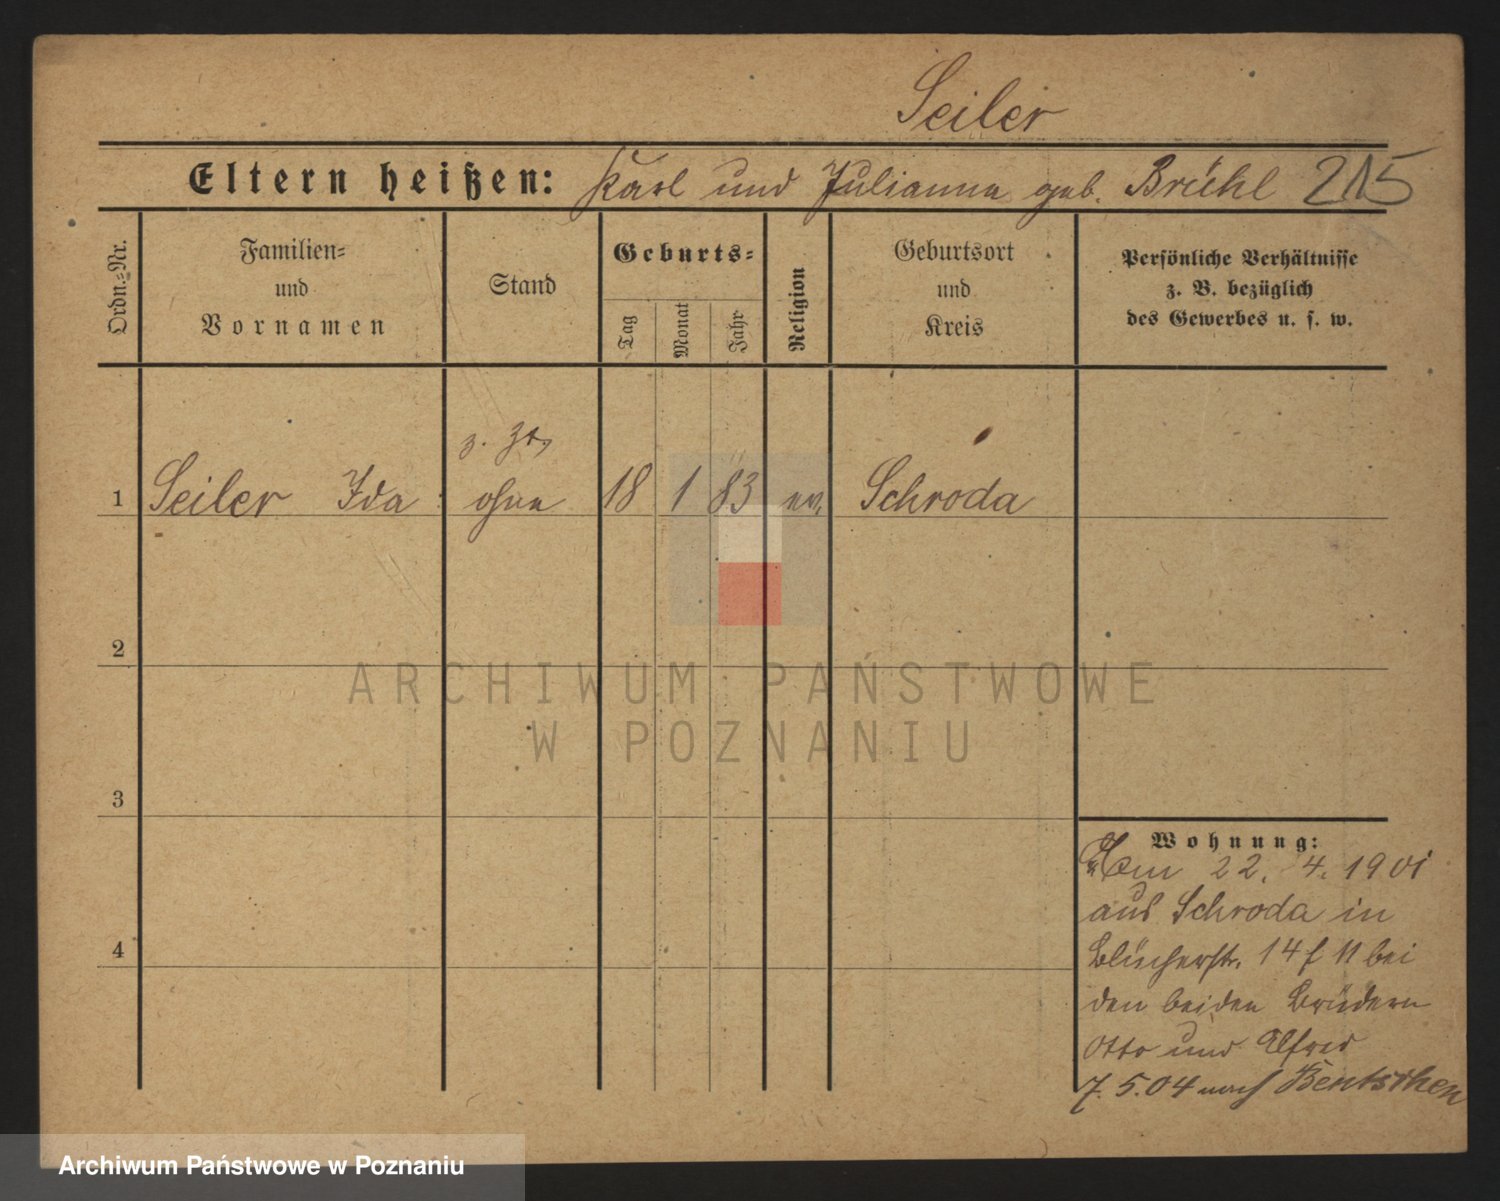 Seiler
Eltern heißen: Karl und Julianna geb. Brühl 215
Ordn.=Nr.
Familien=
und
Vornamen
Stand
Geburts=
Tag
Monat
Jahr
Religion
Geburtsort
und
Kreis
Persönliche Verhältnisse
z. B. bezüglich
des Gewerbes u. s. w.
z. Zt.
1 Seiler Ida ohne 18 1 83 ev. Schroda
2
3
4
Wohnung:
Am 22. 4. 1901
aus Schroda in
Blücherstr. 14 f II bei
den beiden Brüdern
Otto und Alfred
7. 5. 04 nach Bentschen
ARCHIWUM PAŃSTWOWE
W POZNANIU
Archiwum Państwowe w Poznaniu